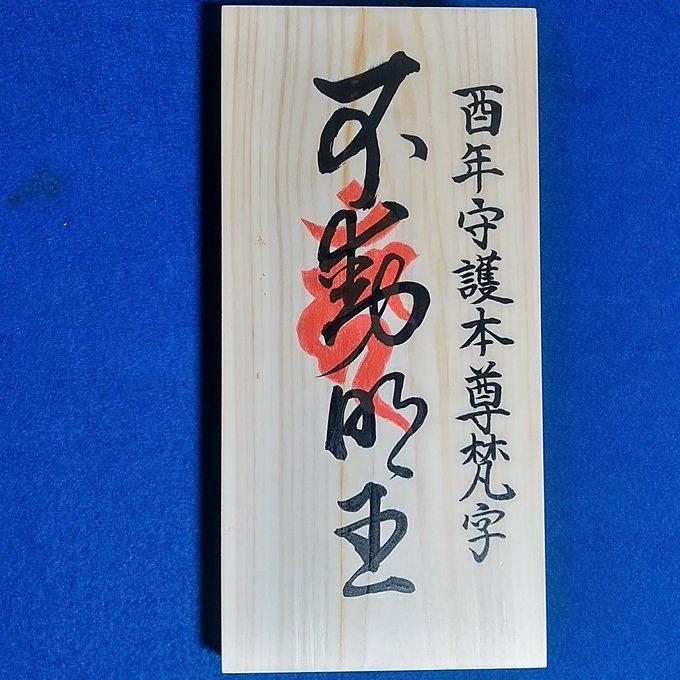 酉年守護本尊梵字
不動明王